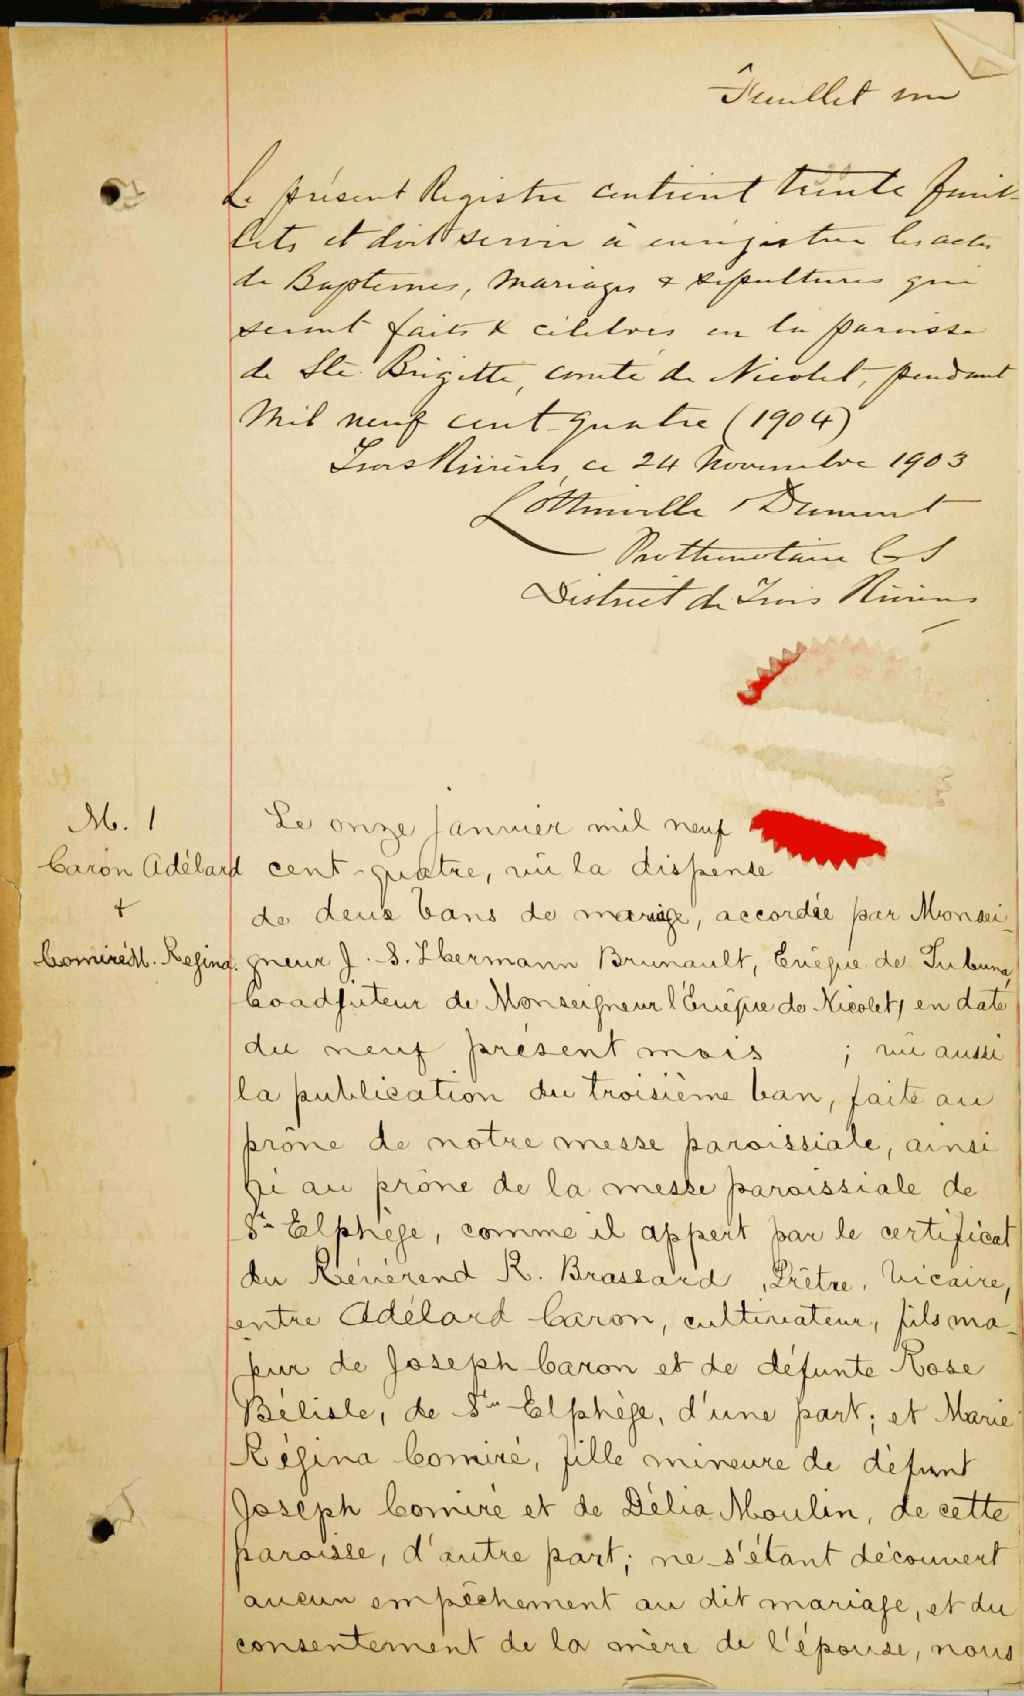 Feuillet un
Le présent Registre contient trente feuil-
lets et doit servir à enrégistrer les actes
de Baptemes, mariages & sépultures qui
seront faits & célébrés en la paroisse
de Ste Brigitte, comté de Nicolet, pendant
Mil neuf cent quatre (1904)
Trois Rivières, ce 24 Novembre 1903
Lottinville & Dumont
Prothonotaire C S
District de Trois Rivières
M. 1
Caron Adélard
+
Comiré M. Regina.
Le onze janvier mil neuf
cent-quatre, vû la dispense
de deux bans de mariage, accordée par Monsei-
gneur J. S. Hermann Brunault, Evêque de Tubuna,
Coadjuteur de Monseigneur l'Evêque de Nicolet, en date
du neuf présent mois ; vû aussi
la publication du troisième ban, faite au
prône de notre messe paroissiale, ainsi
qu'au prône de la messe paroissiale de
St Elphège, comme il appert par le certificat
du Révérend R. Brassard, Prêtre, Vicaire,
entre Adélard Caron, cultivateur, fils ma-
jeur de Joseph Caron et de défunte Rose
Bélisle, de St Elphège, d'une part; et Marie
Régina Comiré, fille mineure de défunt
Joseph Comiré et de Délia Moulin, de cette
paroisse, d'autre part; ne s'étant découvert
aucun empêchement au dit mariage, et du
consentement de la mère de l'épouse, nous